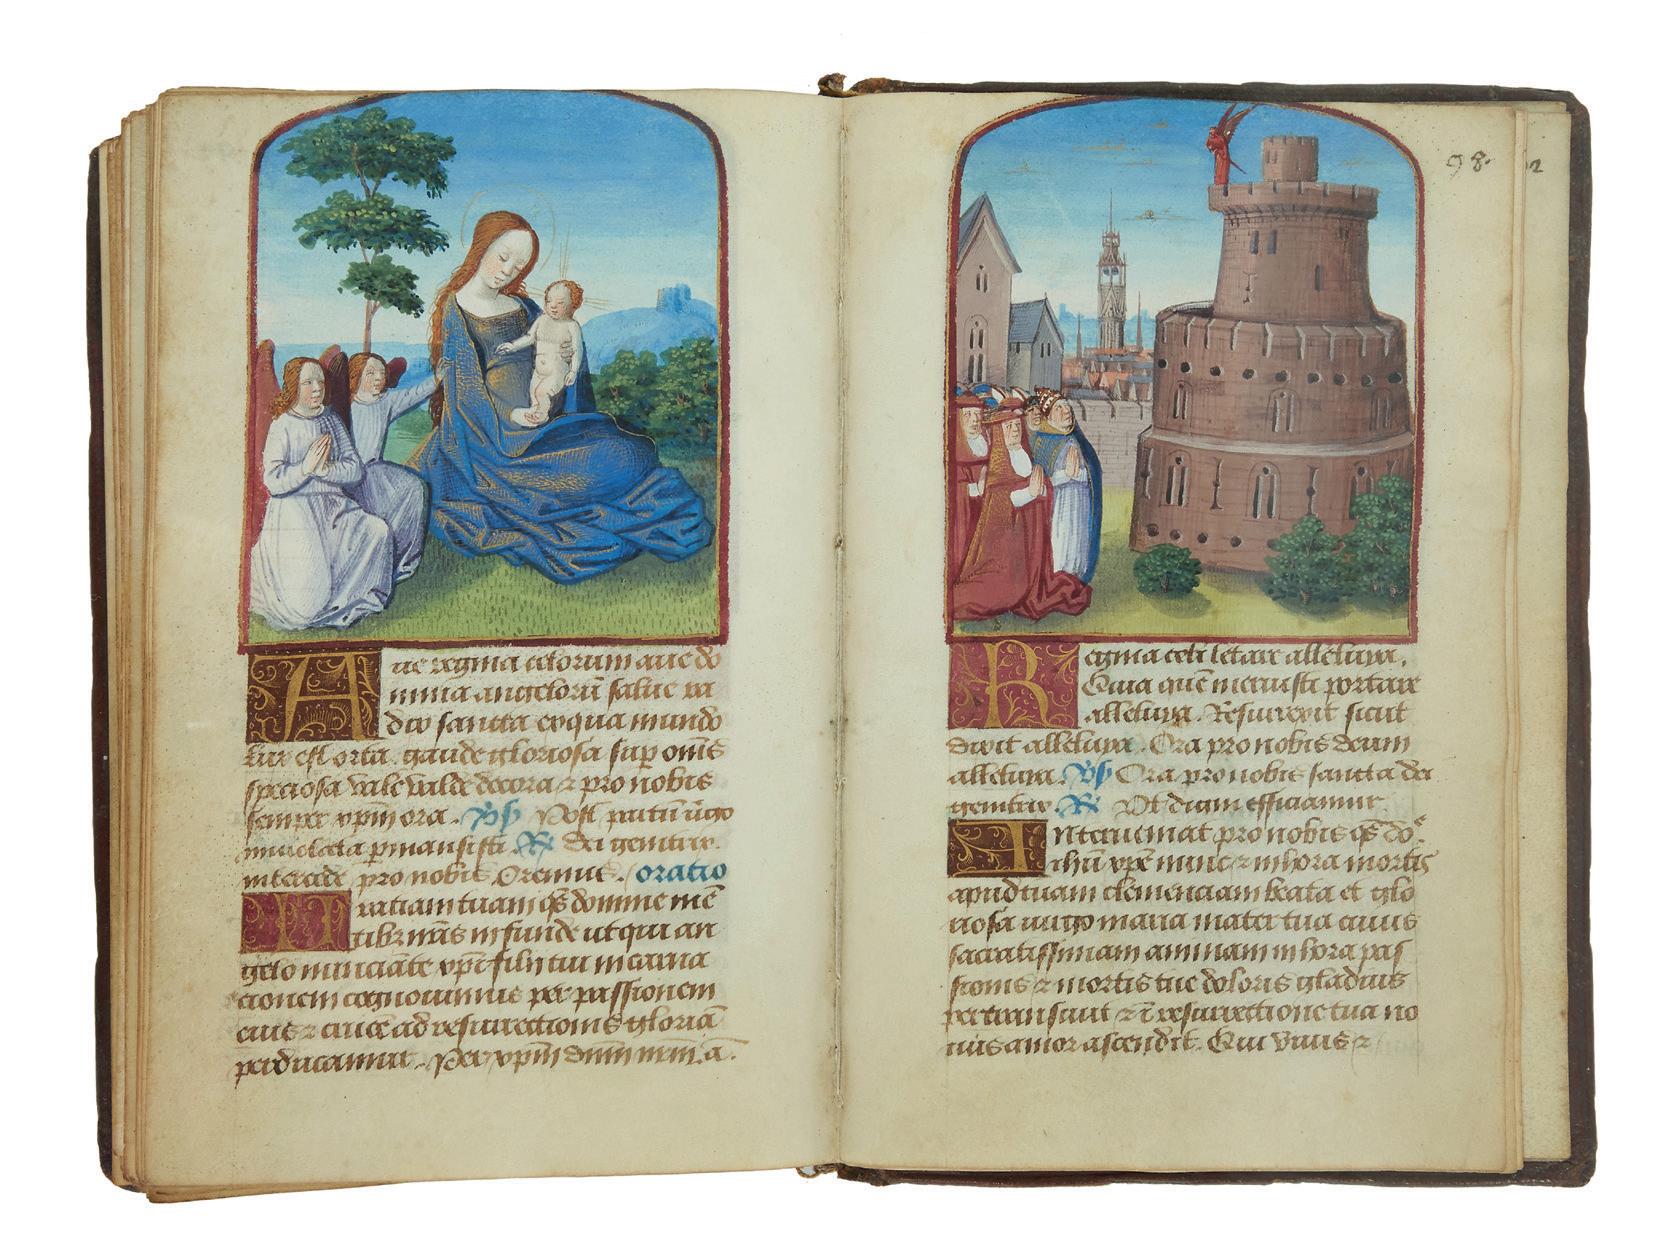 Aue regina celorum aue do
mina angelorū salue ra
dix sancta ex qua mundo
lux est orta. gaude gloriosa sup om̄s
speciosa vale valde decora ⁊ pro nobis
semper xp̄m ora. Vs̄ Post partū v̄go
inuiolata p̄mansisti. R̄ dei genitrix
intercede pro nobis. Oremus. oratio
Gratiam tuam q̄s domine mē
tibꝫ nr̄is infunde ut qui an
gelo nunciāte xp̄i filij tui incarna
cionem cognouimus per passionem
eius ⁊ crucē ad resurrectionis gloriā
perducamur. Per xp̄m dn̄m nrm̄. a.
98.
Regina celi letare alleluya.
Quia quē meruisti portare
alleluya. Resurrexit sicut
dixit alleluya. Ora pro nobis deum
alleluya. Vs̄ Ora pro nobis sancta dei
genitrix. R̄ Ut digni efficiamur
Interueniat pro nobis q̄s dōe
ihū xp̄e nunc ⁊ in hora mortis
apud tuam clemenciam beata et glo
riosa uirgo maria mater tua cuius
sacratissimam animam in hora pas
sionis ⁊ mortis tue doloris gladius
pertransiuit ⁊ ī resurrectione tua no
uus amor ascendit. Qui viuis ⁊